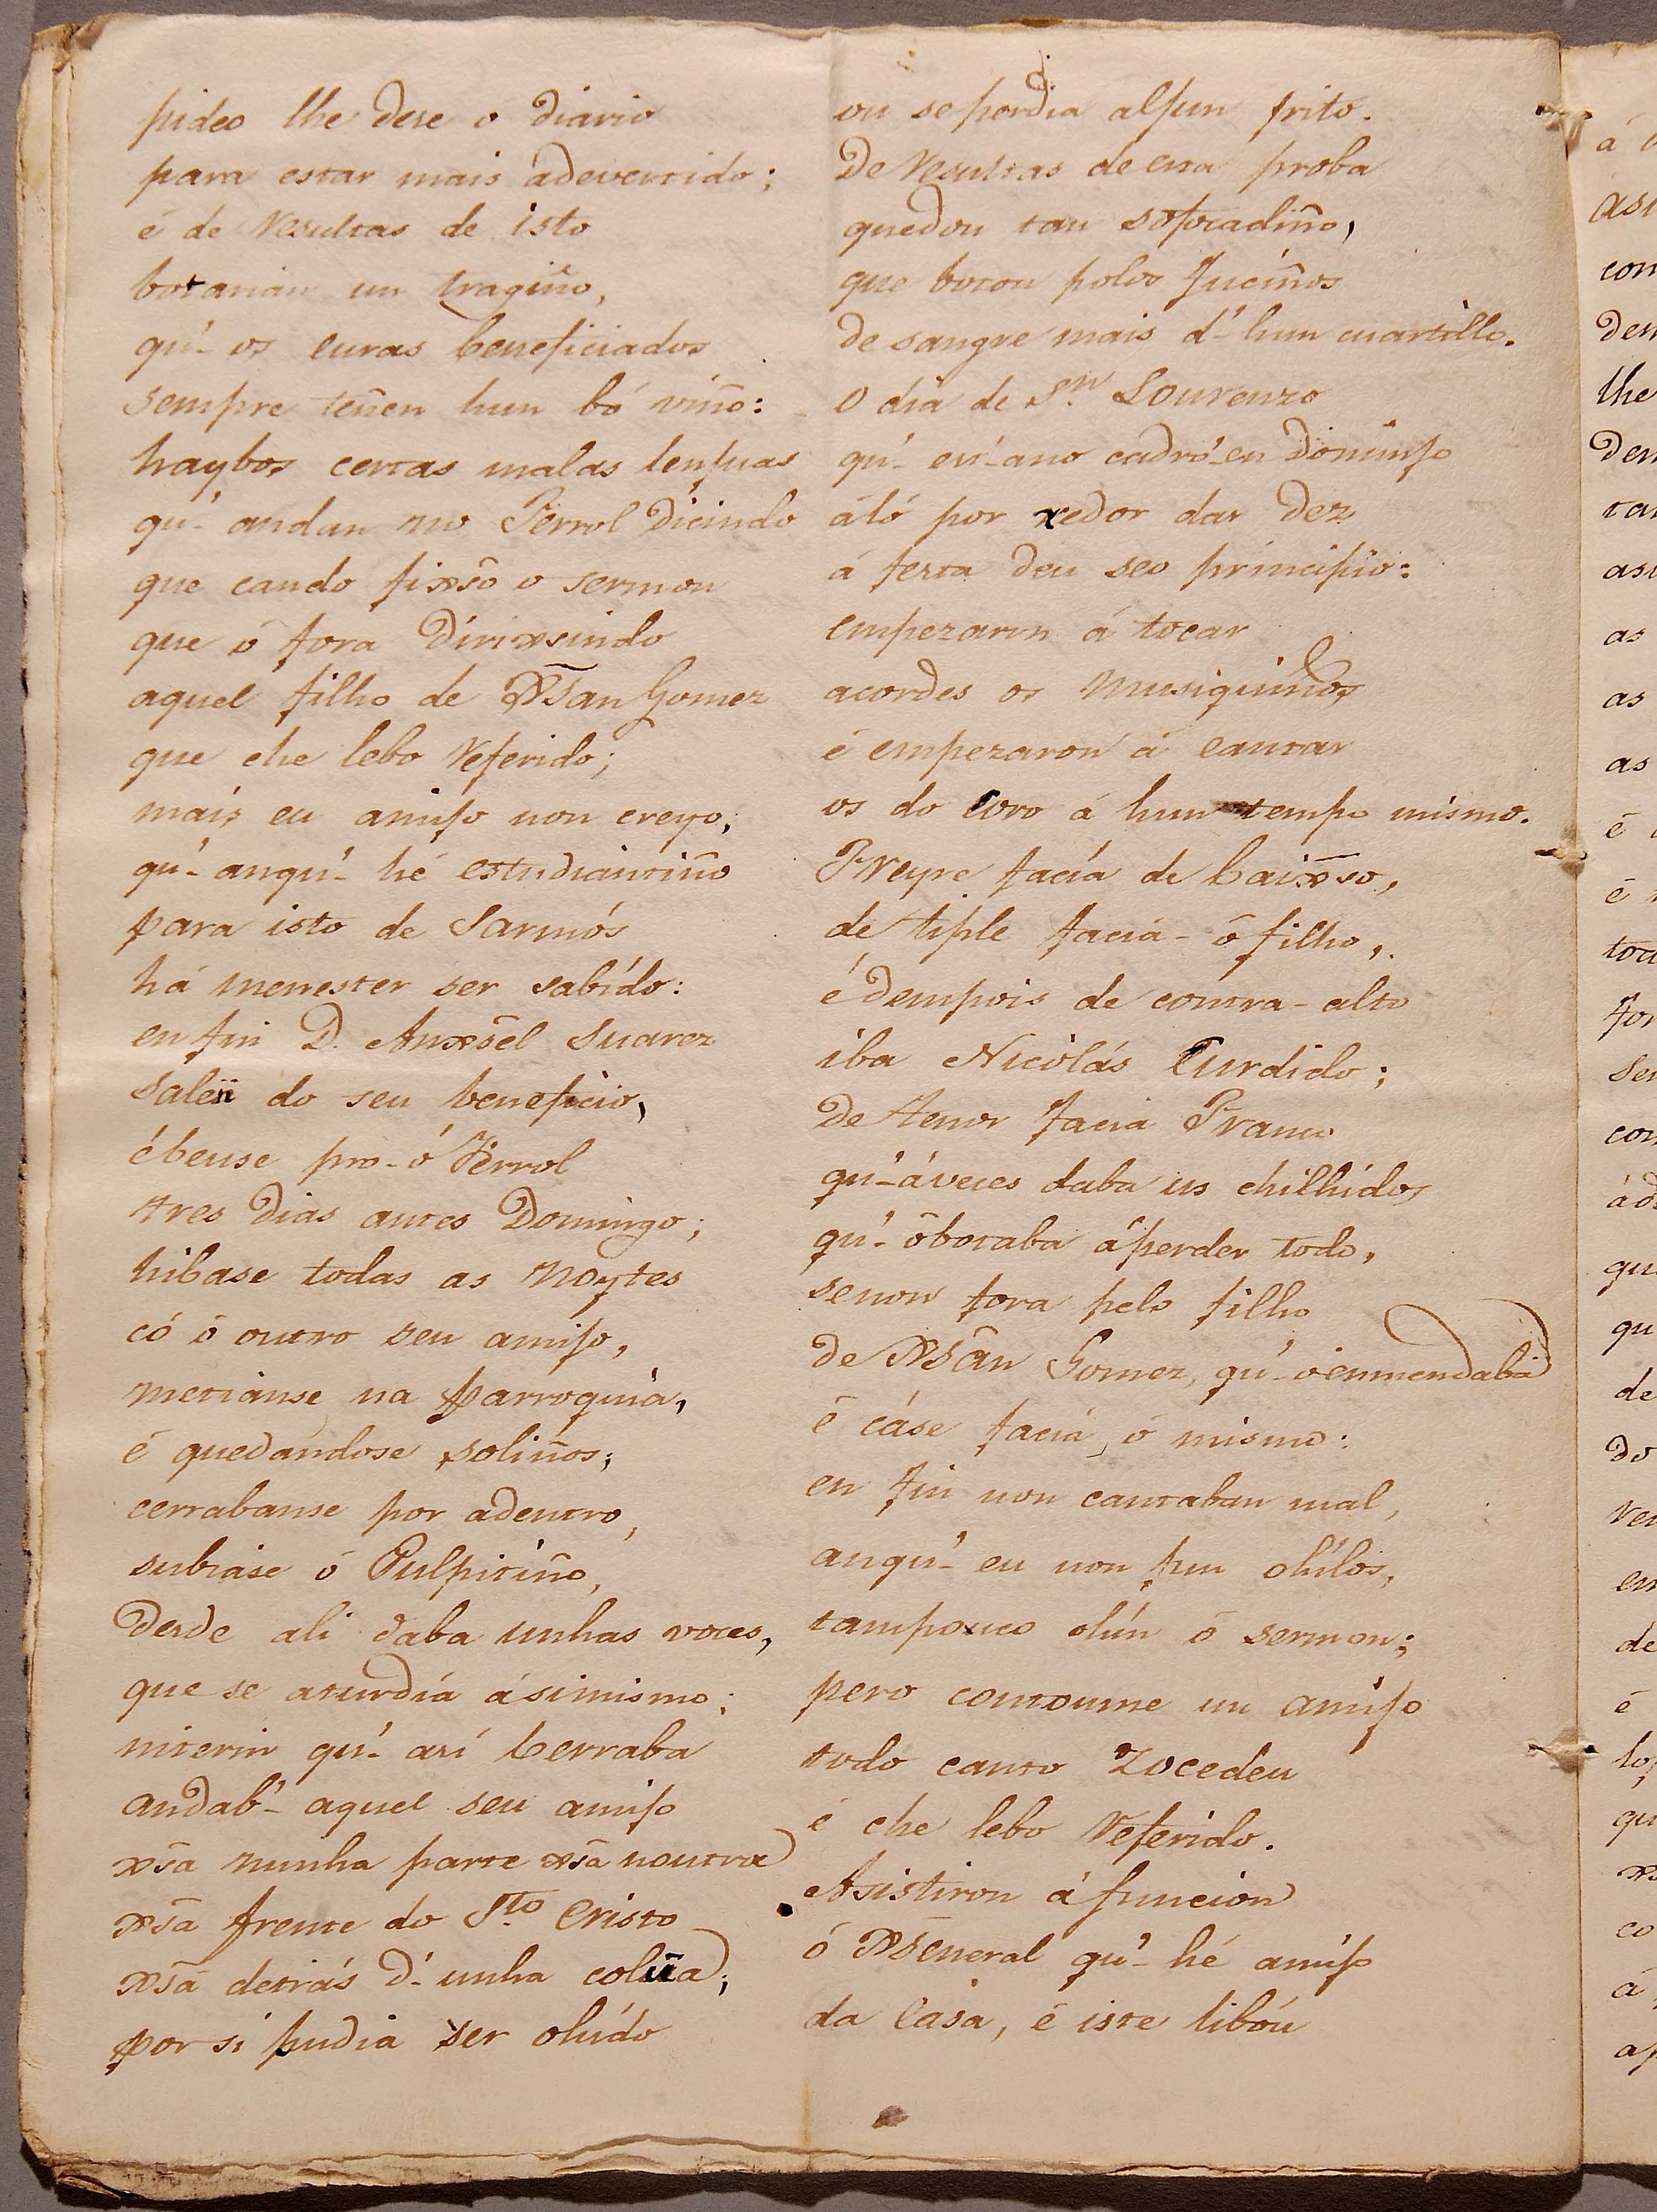 pideo lhe dese o diario
para estar mais adevertido;
é de Resultas de isto
botarian un tragiño,
qu'- os curas beneficiados
sempre teñen hun bó viño:
haybos certas malas lenguas
qu'- andan no Ferrol dicindo
que cando fixsô o sermon
que ó fora dirixsindo
aquel filho de Xsan Gomez
que che lebo Referido;
mais eu amigo non creyo,
qu'- anqu'- hé estudiantiño
para isto de Sarmós
há menester ser sabído:
en fin D. Anxsel Suarez
saleu do seu beneficio,
é beuse pro-ó Ferrol
tres dias antes Domingo;
hibase todas as noytes
có ó outro seu amigo,
metianse na parroquia,
é quedándose soliños;
cerrabanse por adentro,
subiase ó Pulpitiño,
desde ali daba unhas voces,
que se aturdía ásimismo;
niterin qu'- así berraba
andab'- aquel seu amigo
xsa nunha parte xsa noutra
xsa frente do Sto Cristo
xsa detrás d'- unha coluna;
por si pudia ser oluído
ou se perdia algun grito.
De Resultas de esta proba
quedou tan sofocadiño,
que botou polos fuciños
de sangre mais d'- hun cuartillo.
O dia de Sn. Lourenzo
qu'- est'-ano cadró-en domingo
áló por redor dar dez
á festa deu seo principio:
empezaron á tocar
acordes os musiquiños
é empezaron á cantar
os do coro á hun tempo mismo.
Freyre facía de baixso,
de tiple facia- ó filho,
é dempois de contra-alto
iba Nicolás Curdido;
de tenor facia Franco
qu'-áveces daba us chilhídos
qu'- ôbotaba áperder todo,
senon fora pelo filho
de Xsân Gomez, qu'-oenmendaba
é cáse facia, ó mismo:
en fin non cantaban mal,
anqu'- eu non fun oluílos,
tampouco oluín ó sermon;
pero contoume un amigo
todo canto zocedeu
é che lebo Referido.
Asistiron á funcion
ó Xseneral qu'- hé amigo
da Casa, é iste libóu